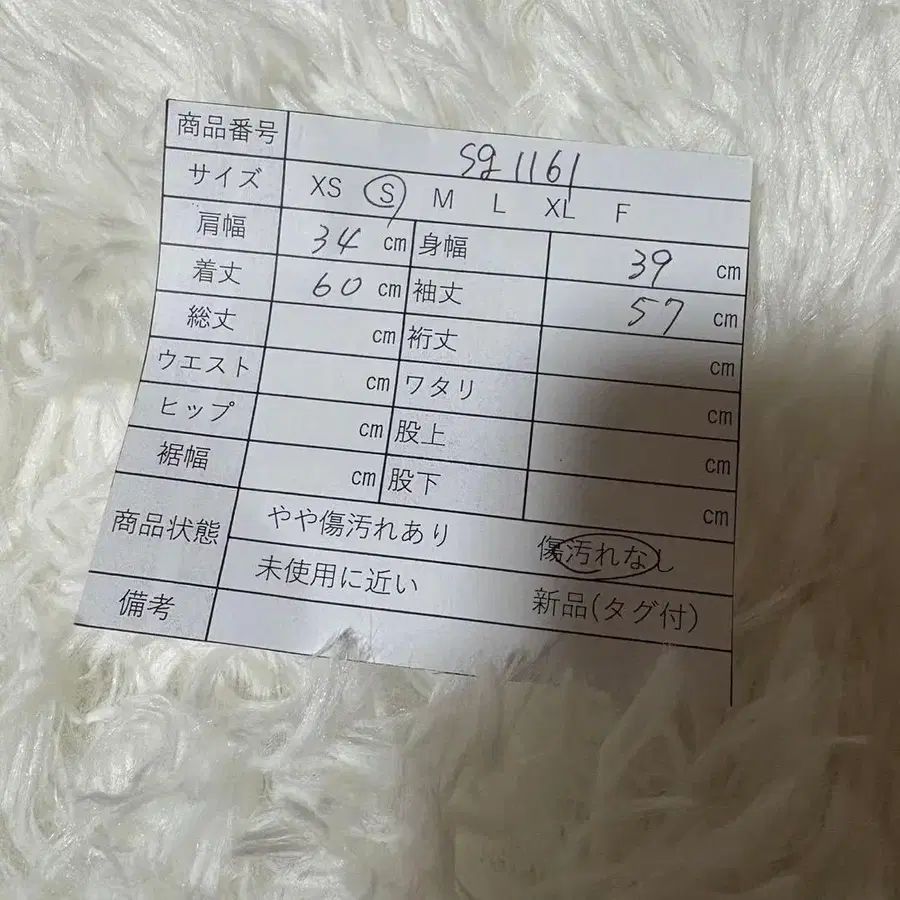 商品番号 sg 1161
サイズ XS S M L XL F
肩幅 34 cm 身幅 39 cm
着丈 60 cm 袖丈 57 cm
総丈 cm 裄丈 cm
ウエスト cm ワタリ cm
ヒップ cm 股上 cm
裾幅 cm 股下 cm
商品状態 やや傷汚れあり 傷汚れなし
未使用に近い 新品(タグ付)
備考